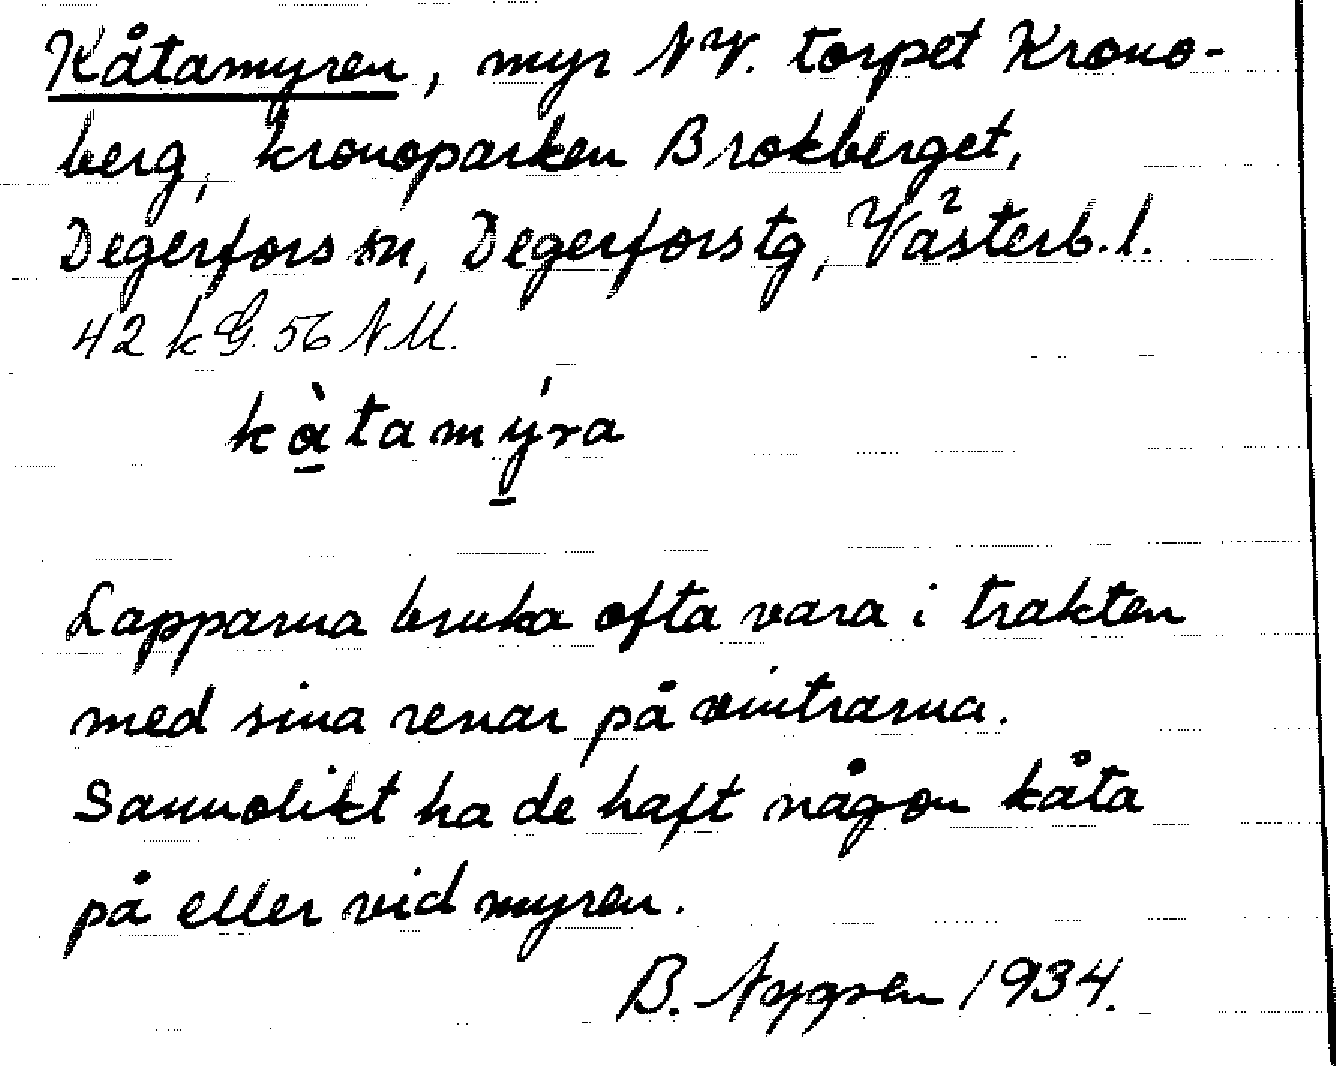 Kåtamyren, myr NV. torpet Krono-
berg, kronoparken Brokberget,
Degerfors sn, Degerfors tg, Västerb. l.
42 k G. 56 N M.
kàtamýra
Lapparna bruka ofta vara i trakten
med sina renar på vintrarna.
Sannolikt ha de haft någon kåta
på eller vid myren.
B. Nygren 1934.